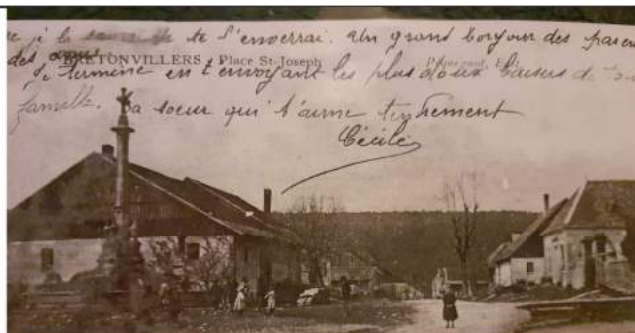 je le saurai je te l'enverrai. Un grand bonjour des paren
des amis
BRETONVILLERS - Place St-Joseph
Je termine en t'envoyant les plus doux baisers de
famille. Ta soeur qui t'aime tendrement
Cécile